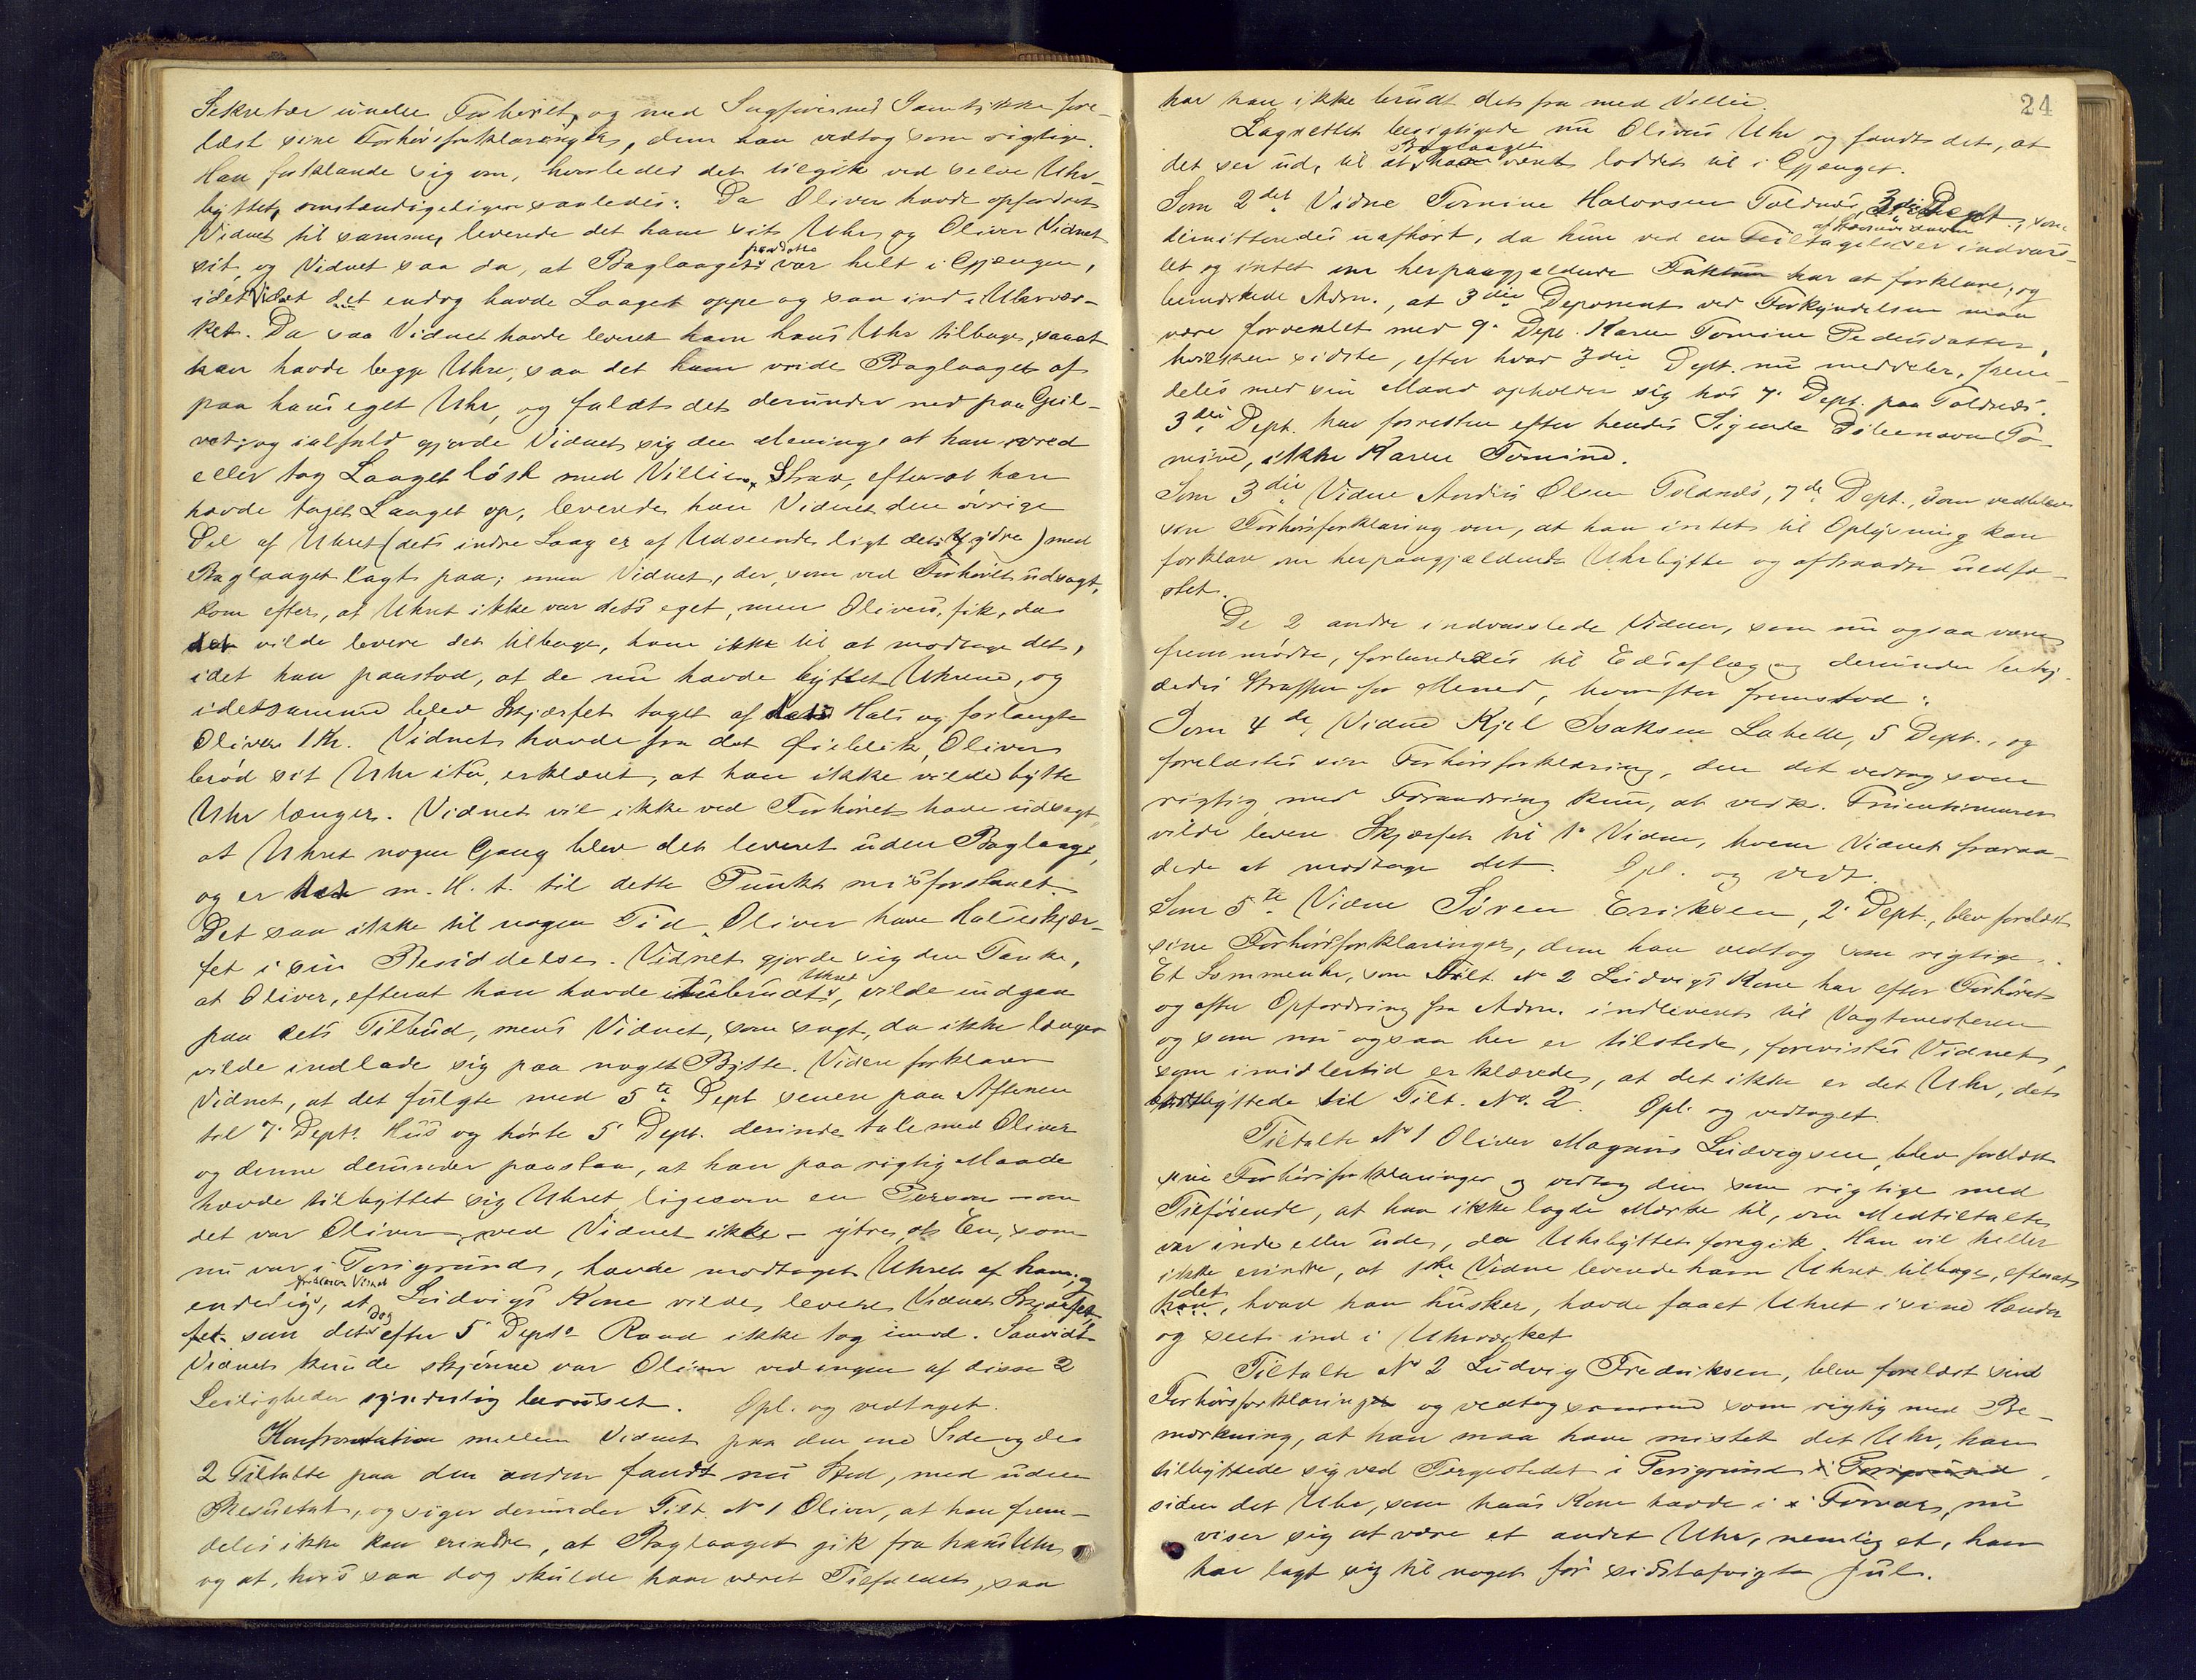 Sekretær under Forhöret, og med Sagförernes Samtykke fore-
læst sine Forhörsforklaringer, dem han vedtog som rigtige.
Han forklarede sig om, hvorledes det tilgik ved selve Uhr-
byttet, omstændigeligere saaledes: Da Oliver havde opfordret
Vidnet til samme, leverede det ham sit Uhr og Oliver Vidnet
sit, og Vidnet saa da, at Baglaaget paa dette var helt i Gjængen,
idet Vidnet det endog havde Laaget oppe og saa ind i Uhrvær-
ket. Da saa Vidnet havde leveret ham hans Uhr tilbage, saaat
han havde begge Uhre, saa det ham vride Baglaaget af
paa hans eget Uhr, og faldt det derunder ned paa Gul-
vet; og ialfald gjorde Vidnet sig den Mening, at han vred
eller tog Laaget löst med Villie. Strax, efterat han
havde taget Laaget op, leverede han Vidnet den övrige
Del af Uhret (dets indre Laag er af Udseende ligt dets ydre) med
Baglaaget lagt paa; men Vidnet, der, som ved Forhöret udsagt,
kom efter, at Uhret ikke var dets eget, men Olivers, fik, da
det vilde levere det tilbage, ham ikke til at modtage det,
idet han paastod, at de nu havde byttet Uhrene, og
idetsamme blev Skjærfet taget af dets Hals og forlangte
Oliver 1 Kr. Vidnet havde fra det Öieblik, Oliver
bröd sit Uhr itu, erklæret, at han ikke vilde bytte
Uhr længer. Vidnet vil ikke ved Forhöret have udsagt,
at Uhret nogen Gang blev det leveret uden Baglaag,
og er det m. H. t. til dette Punkt misforstaaet.
Det saa ikke til nogen Tid Oliver have Halsskjær-
fet i sin Besiddelse. Vidnet gjorde sig den Tanke,
at Oliver, efterat han havde itubrudt Uhret, vilde indgaa
paa dets Tilbud, mens Vidnet, som sagt, da ikke længer
vilde indlade sig paa noget Bytte. Videre forklarer
Vidnet, at det fulgte med 5te Dept senere paa Aftenen
til 7. Depts. Hus og hörte 5. Dept. derinde tale med Oliver
og denne derunder paastaa, at han paa rigtig Maade
havde tilbyttet sig Uhret, ligesom en Person – om
det var Oliver, ved Vidnet ikke – ytre, at En, som
nu var i Porsgrund, havde modtaget Uhret af ham; og
endelig forklarer Vidnet, at Ludvigs Kone vilde levere Vidnet Skjærfet,
som det dog efter 5. Depts. Raad ikke tog imod. Saavidt
Vidnet kunde skjönne var Oliver ved ingen af disse 2
Leiligheder synderlig beruset. Opl. og vedtaget.
Konfrontation mellem Vidnet paa den ene Side og de
2 Tiltalte paa den anden fandt nu Sted, med uden
Resultat, og siger derunder Tilt. No 1 Oliver, at han frem-
deles ikke kan erindre, at Baglaaget gik fra hans Uhr,
og at, hvis saa dog skulde have været Tilfældet, saa
24
har han ikke brudt det fra med Villie.
Lagretten besigtigede nu Olivers Uhr og fandt det, at
det ser ud, til at Baglaaget har været loddet til i Gjænget.
Som 2det Vidne Tomine Halvorsen Toldnæs, 3die Dept., som
dimitteredes uafhört, da hun ved en Feiltagelse af Stævnevidnerne er indvars-
let og intet om herpaagjældende Faktum har at forklare; og
bemærkede Adm., at 3die Deponent ved Forkyndelsen maa
være forvexlet med 9. Dept. Karen Tomine Pedersdatter,
hvilken sidste, efter hvad 3die Dept. nu meddeler, frem-
deles med sin Mand opholder sig hos 7. Dept. paa Toldnæs.
3die Dept. har forresten efter hendes Sigende Döbenavn To-
mine, ikke Karen Tomine.
Som 3die Vidne Andres Olsen Toldnæs, 7de Dept., som vedblev
sin Forhörsforklaring om, at han intet til Oplysning kan
forklare om herpaagjældende Uhrbytte og aftraadte uedfæ-
stet.
De 2 andre indvarslede Vidner, som nu ogsaa vare
fremmödte, forberededes til Edsaflæg og derunder betyd-
dedes Straffen for Mened, hvorefter fremstod:
Som 4de Vidne Kjel Isaksen Labelle, 5 Dept., og
forelæstes sin Forhörsforklaring, den det vedtog som
rigtig med Forandring kun, at vedk. Fruentimmer
vilde levere Skjærfet til 1. Vidne, hvem Vidnet fraraa-
dede at modtage det. Opl. og vedt.
Som 5te Vidne Sören Eriksen, 2. Dept., blev forelæst
sine Forhörsforklaringer, dem han vedtog som rigtige.
Et Lommeuhr, som Tilt. No 2 Ludvigs Kone har efter Forhöret
og efter Opfordring fra Adm. indleveret til Vagtmesteren
og som nu ogsaa her er tilstede, forevistes Vidnet,
som imidlertid erklærede, at det ikke er det Uhr, det
bortbyttede til Tilt. No. 2. Opl. og vedtaget.
Tiltalte No 1 Oliver Magnus Ludvigsen, blev forelæst
sine Forhörsforklaringer og vedtog dem som rigtige med
Tilföiende, at han ikke lagde Mærke til, om Medtiltalte
var inde eller ude, da Uhrbyttet foregik. Han vil heller
ikke erindre, at 1ste Vidne leverede ham Uhret tilbage, efterat
det, hvad han husker, havde faaet Uhret i sine Hænder
og seet ind i Uhrværket
Tiltalte No 2 Ludvig Fredriksen, blev forelæst sin
Forhörsforklaring og vedtog samme som rigtig med Be-
mærkning, at han maa have mistet det Uhr, han
tilbyttede sig ved Fergestedet i Porsgrund i Porsgrund,
siden det Uhr, som hans Kone havde i Forvar, nu
viser sig at være et andet Uhr, nemlig et, han
har lagt sig til noget för sidstafvigte Jul.